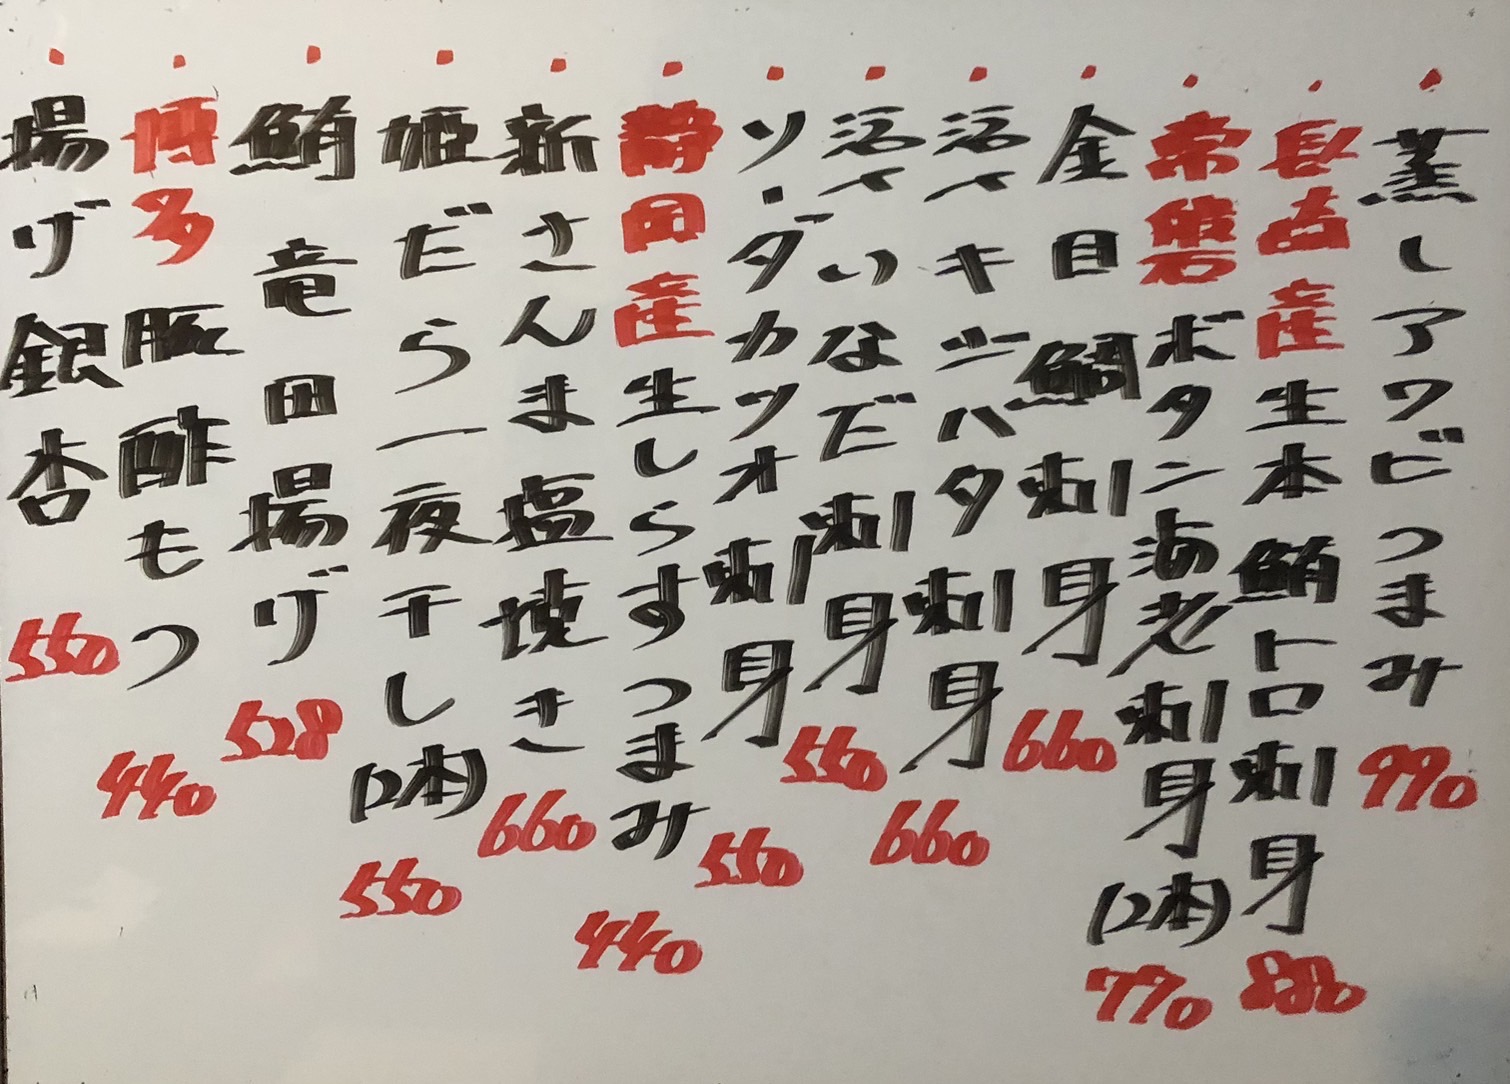 蒸しアワビつまみ 990
長崎産生本鮪トロ刺身 880
常磐ボタン海老刺身(2本) 770
金目鯛刺身 660
活〆キジハタ刺身 660
活〆いなだ刺身 550
ソーダカツオ刺身 550
静岡産生しらすつまみ 440
新さんま塩焼き 660
姫だら一夜干し(2本) 550
鮪竜田揚げ 528
博多豚酢もつ 440
揚げ銀杏 550